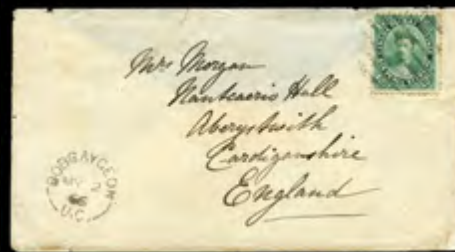 Mrs Morgan
Nanteaeris Hall
Aberystwith
Cardiganshire
England
BOBCAYGEON
2
66
U.C.